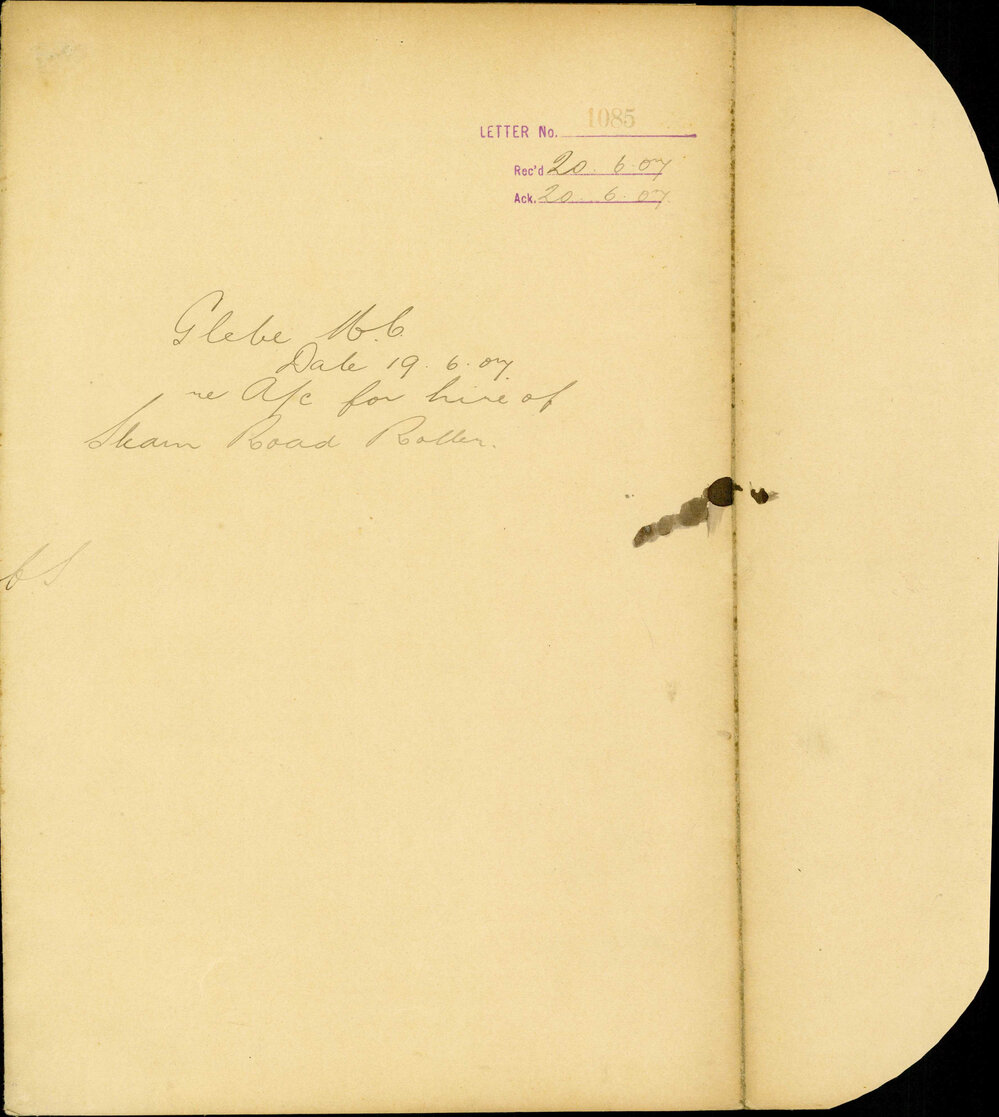 LETTER No. 1085
Rec'd 20. 6. 07
Ack. 20. 6. 07
Glebe M.C.
Date 19. 6. 07.
re A/c for hire of
Steam Road Roller.